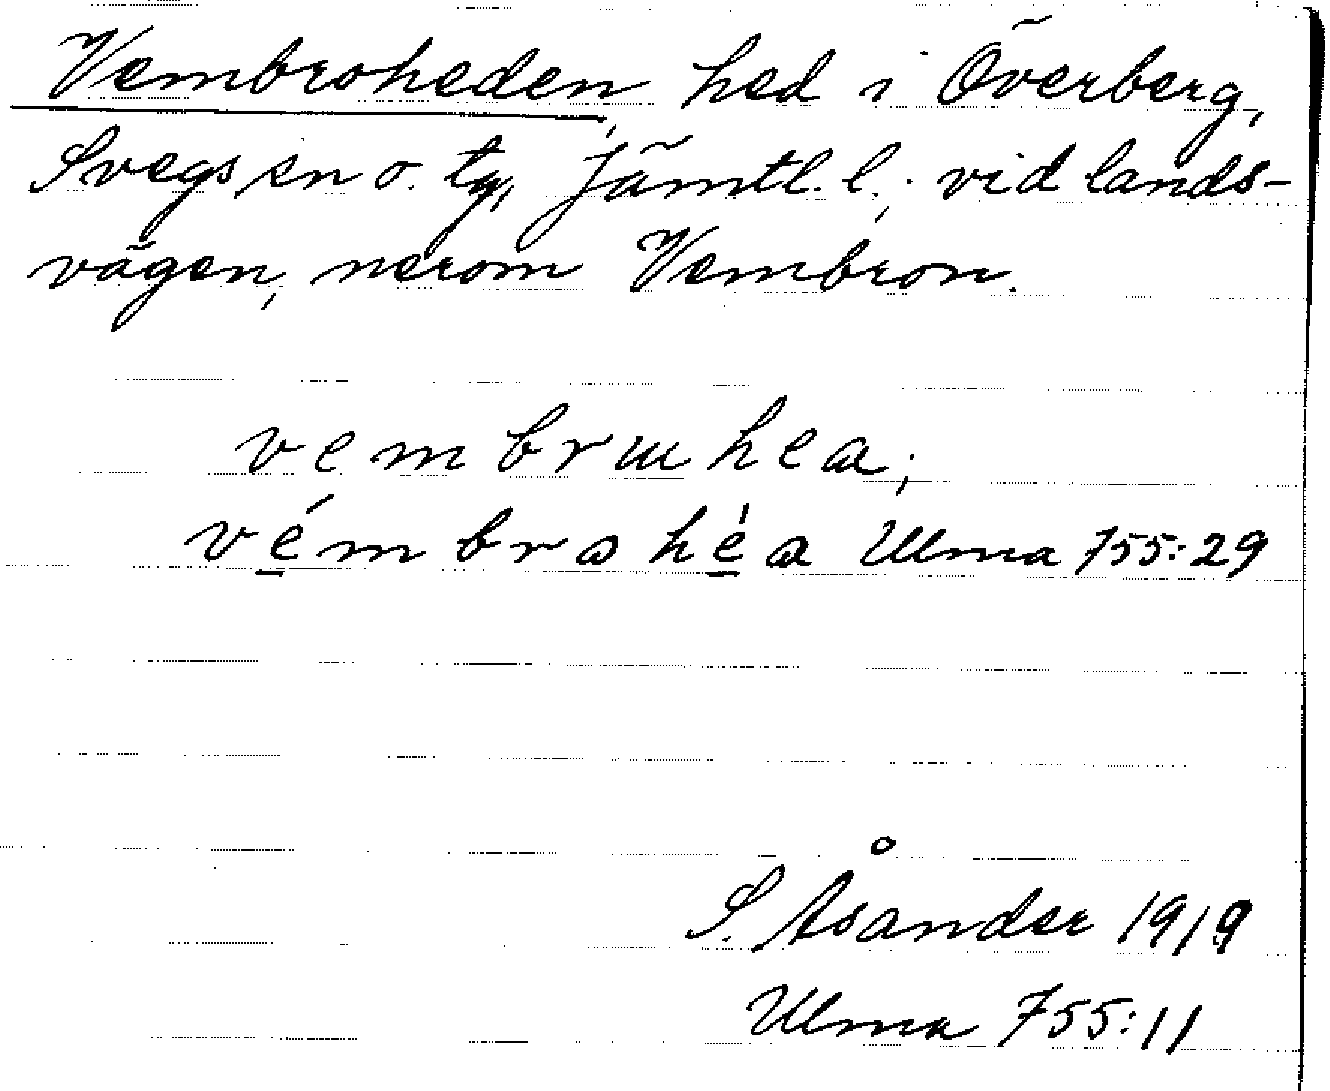 Vembroheden, hed i Överberg,
Svegs sn o. tg, Jämtl. l.; vid lands-
vägen, nerom Vembron.
vembrɯhea;
vémbrahéa Ulma 755:29
S. Åsander 1919
Ulma 755:11